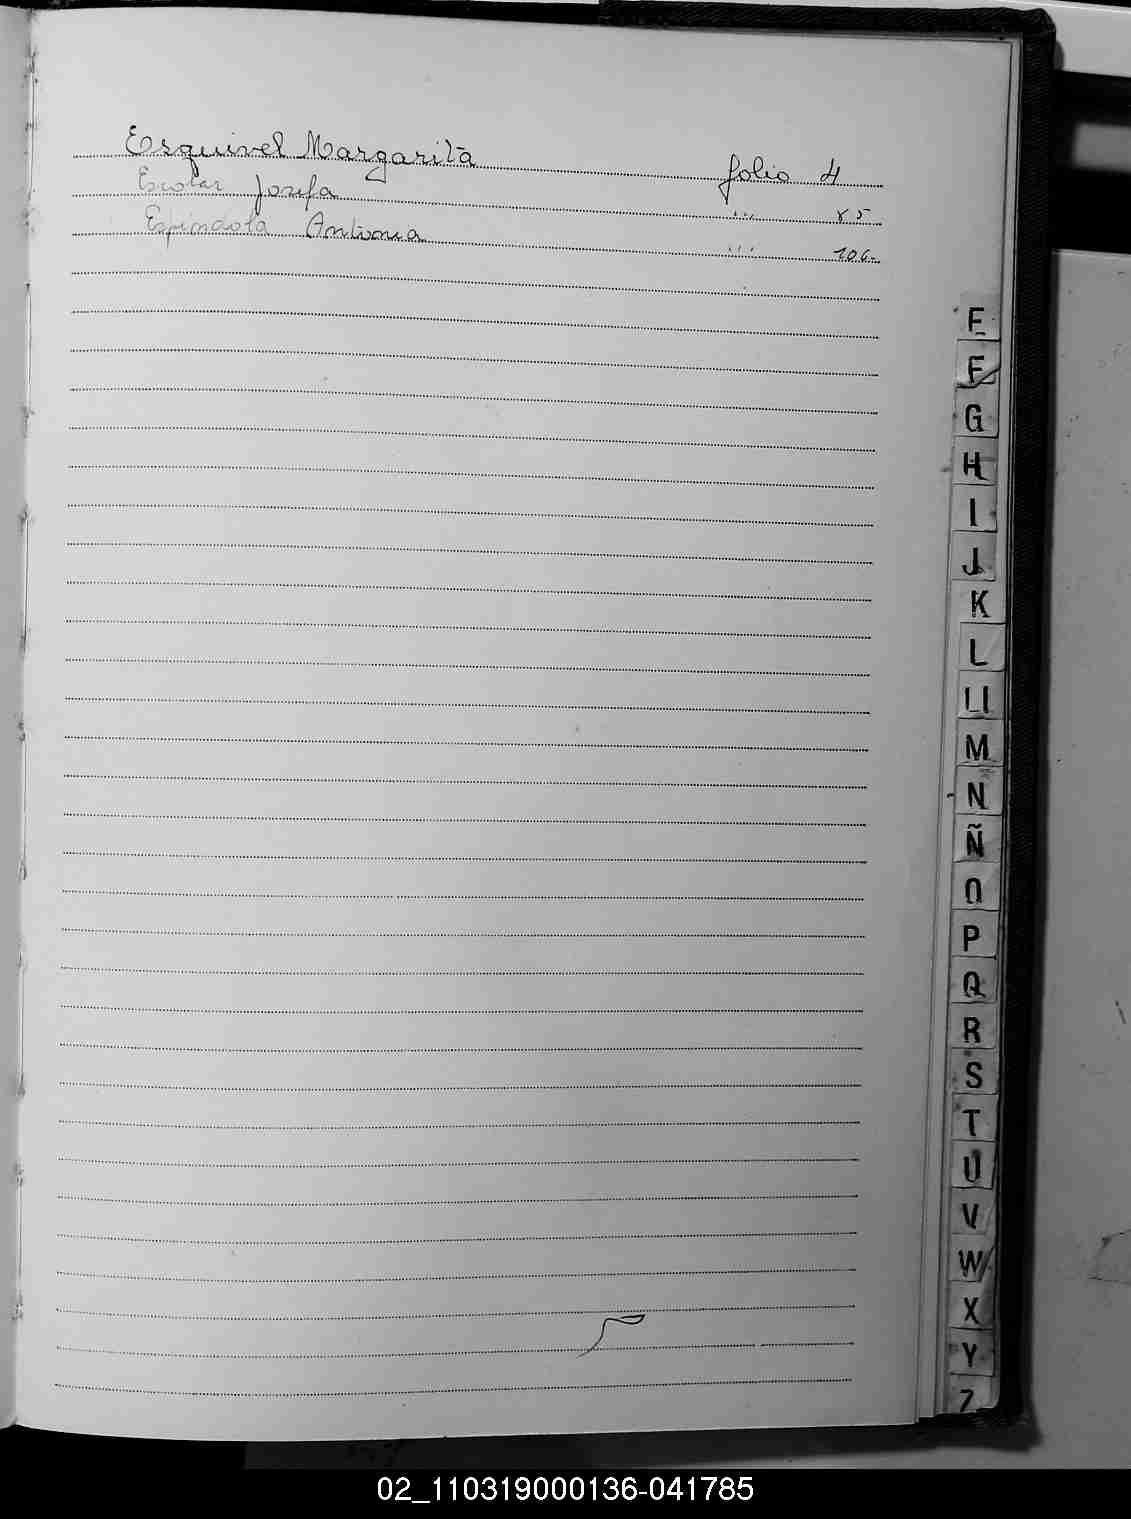 Esquivel Margarita folio 4
Escolar Josefa ,,, 85
Espindola Antonia ,,, 106-
E
F
G
H
I
J
K
L
Ll
M
N
Ñ
O
P
Q
R
S
T
U
V
W
X
Y
Z
02_110319000136-041785